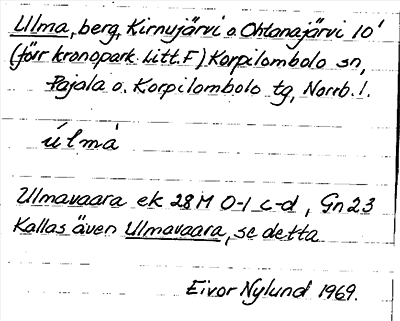 Ulma, berg, Kirnujärvi o. Ohtanajärvi 10'
(förr kronopark Litt. F) Korpilombolo sn,
Pajala o. Korpilombolo tg, Norrb. l.
úlmà
Ulmavaara ek 28 M 0-1 c-d, Gn 23
Kallas även Ulmavaara, se detta
Eivor Nylund 1969.